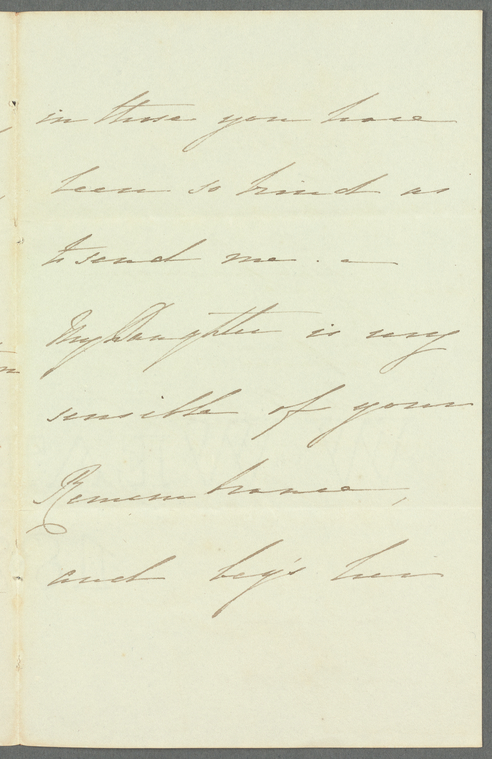 in those you have
been so kind as
to send me. —
My Daughter is very
sensible of your
Remembrance,
and beg's her